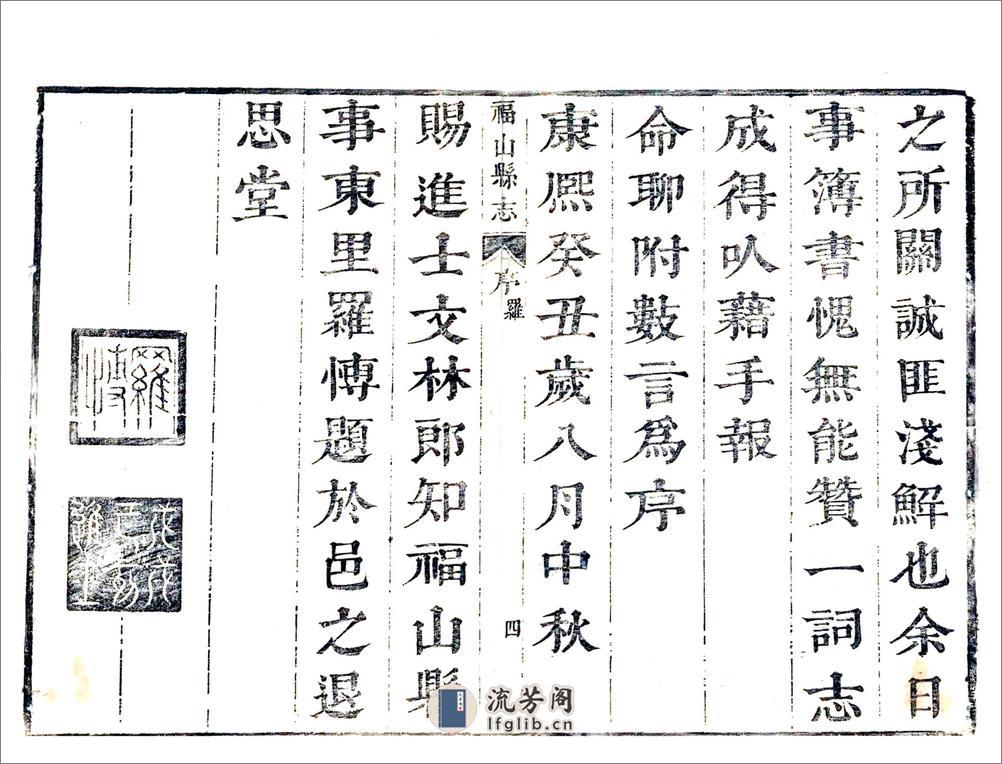 之所關誠匪淺解也余日
事簿書愧無能贊一詞志
成得㕥藉手報
命聊附數言爲序
康熙癸丑歲八月中秋
福山縣志 序 羅 四
賜進士文林郎知福山縣
事東里羅愽題於邑之退
思堂
羅愽
戊戌己亥進士
流芳阁
lfglib.cn